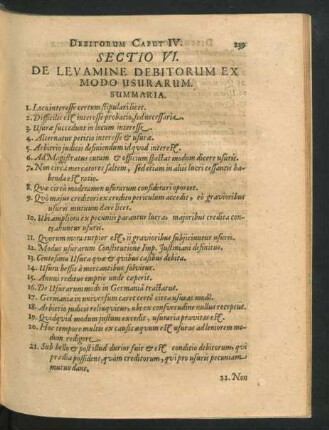 DEBITORUM CAPUT IV. 239
SECTIO VI.
DE LEVAMINE DEBITORUM EX
MODO USURARUM.
SUMMARIA.
1. Loco interesse certum stipulari licet.
2. Difficilis est interesse probatio, sed necessaria.
3. Usura succedunt in locum interesse.
4. Alternatur petitio interesse & usura.
5. Arbitrio judicis definiendum id quod interest.
6. Ad Magistratus curam & officium spectat modum dicere usuris.
7. Non circa mercatores saltem, sed etiam in aliis lucri cessantis ha-
benda est ratio.
8. Qua circa moderamen usurarum considerari oporteat.
9. Quò majus creditori ex credito periculum accedit, eò gravioribus
usuris mutuum dari licet.
10. Ubi ampliora ex pecuniis parantur lucra, majoribus credita con-
trahuntur usuris.
11. Quorum mora turpior est, ii gravioribus subjiciuntur usuris.
12. Modus usurarum Constitutione Imp. Justiniani definitus.
13. Centesima Usura qua & quibus casibus debita.
14. Usura bessis à mercatoribus solvitur.
15. Annui reditus emptio unde caperit.
16. De Usurarum modo in Germaniâ tractatus.
17. Germania in universum caret certo circa usuras modo.
18. Arbitrio judicis relinquitur, ubi ex consuetudine nullus receptus.
19. Quidquid modum justum excedit, usuraria pravitas est.
20. Hoc tempore multis ex causis æquum est usuras ad leniorem mo-
dum redigere.
21. Sub bello & post illud durior fuit & est conditio debitorum, qui
prædia possident, quàm creditorum, qui pro usuris pecuniam
mutuò dant.
22. Non